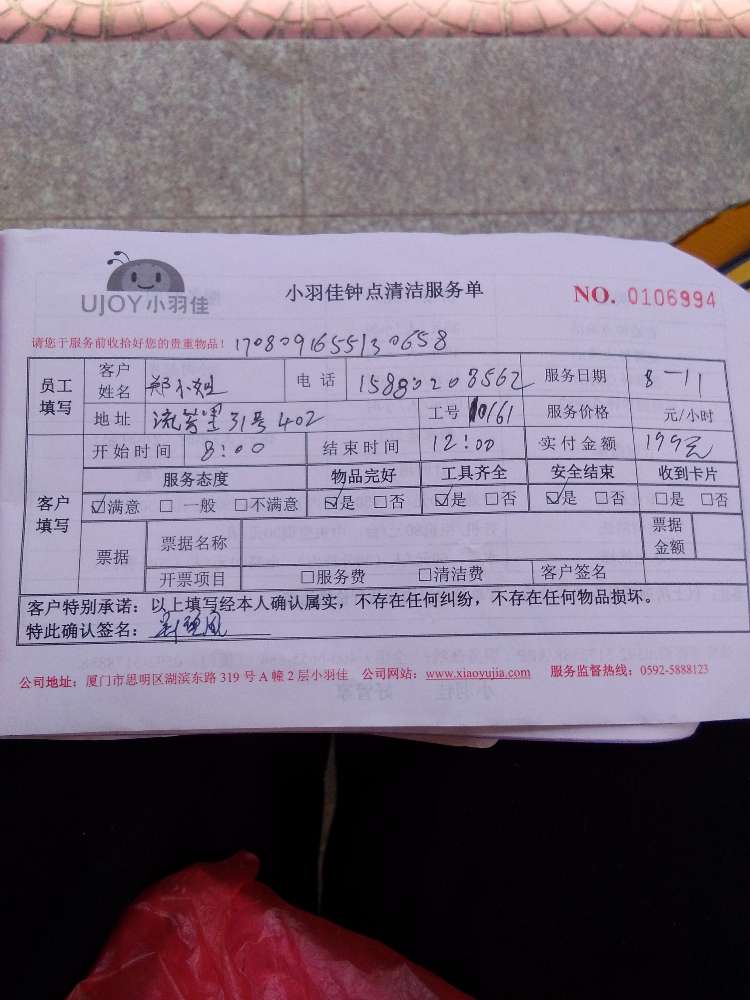 UJOY小羽佳 小羽佳钟点清洁服务单 NO. 0106994
请您于服务前收拾好您的贵重物品! 170809165513 0658
员工填写 客户姓名 郑小姐 电话 15880208562 服务日期 8-11
地址 流芳里31号402 工号 10161 服务价格 元/小时
客户填写 开始时间 8:00 结束时间 12:00 实付金额 199元
服务态度 物品完好 工具齐全 安全结束 收到卡片
☑满意 □一般 □不满意 ☑是 □否 ☑是 □否 ☑是 □否 □是 □否
票据 票据名称 票据金额
开票项目 □服务费 □清洁费 客户签名
客户特别承诺:以上填写经本人确认属实,不存在任何纠纷,不存在任何物品损坏。
特此确认签名:
公司地址:厦门市思明区湖滨东路 319 号 A 幢 2 层小羽佳 公司网站:www.xiaoyujia.com 服务监督热线:0592-5888123